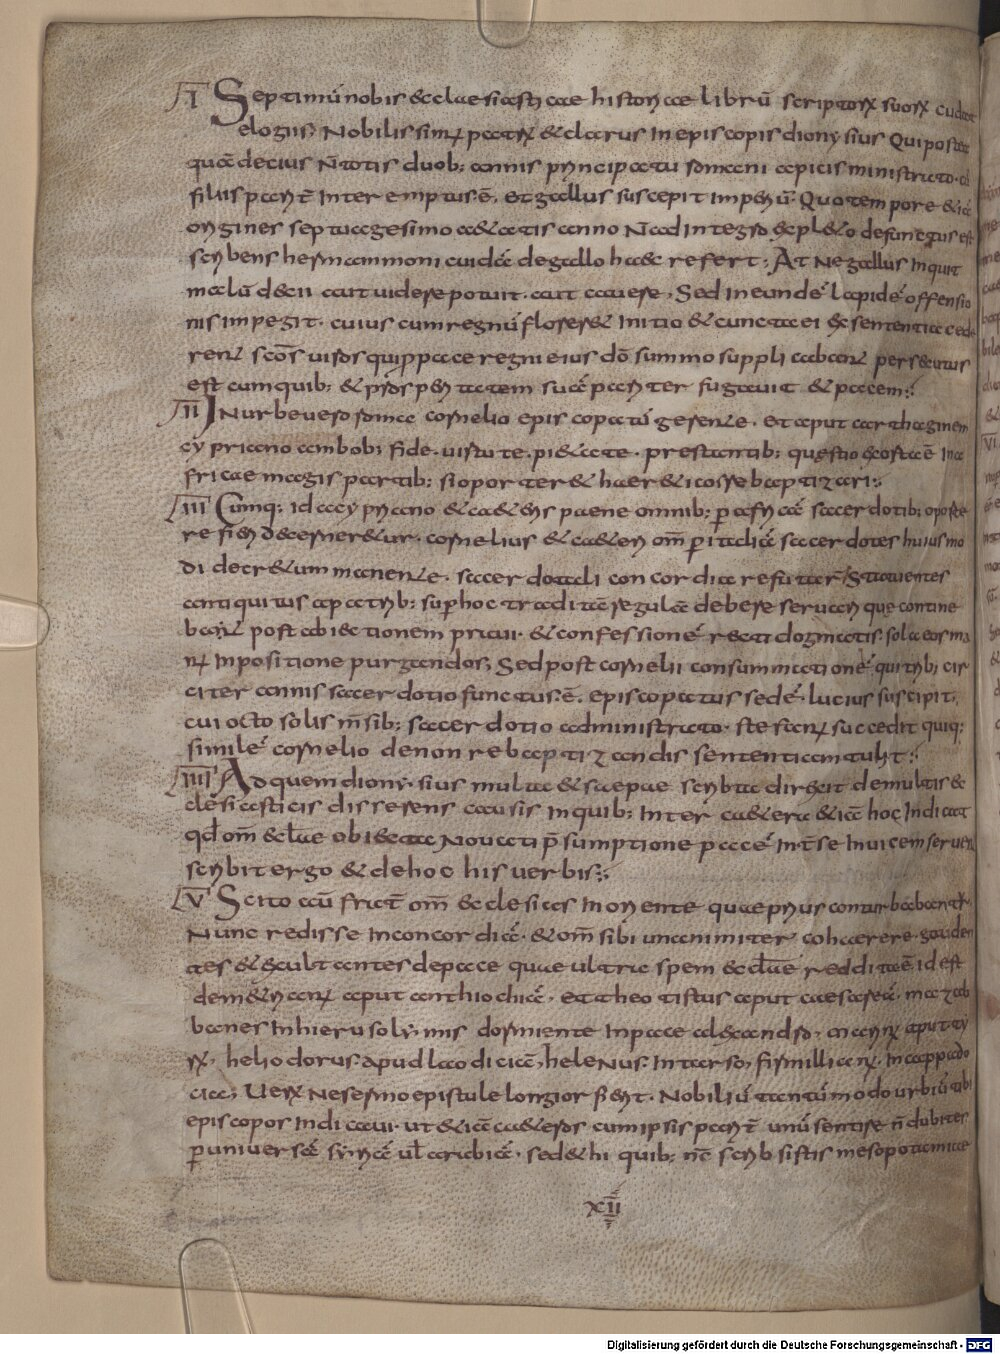 I Septimū nobis ecclesiasticae historicae librū scriptorꝝ suorꝝ
elogiis, Nobilissimꝰ patrꝝ & clarus in episcopis dionysius Qui postea
quā decius n̄ totis duob; annis principatu romani apicis ministrato
filiis parit̄ interemptus ē, et gallus suscepit imperiū. Quo tempore & iā
origines septuagesimo aetatis anno n̄ ad integro expleto defunctus est
scribens hermammoni cuidā de gallo haec refert; At ne gallus inquit
malū decii aut videre potuit aut cavere, Sed in eundē lapidē offensio
nis impegit. cuius cum regnū floreret initio & cuncta ei ex sententia cede
rent scōs viros qui p pace regni eius dō summo supplicabant persecutus
est cum quib; & prosperitatem suā pariter fugavit & pacem;
II IN urbe vero roma cornelio episcopatū gerente. et aput carthaginem
cypriano ambob; fide. virtute. pietate. prestantib; questio exorta ē in a
fricae magis partib; si oporteret hereticos rebaptizari;
III Cumq; id a cypriano & ceteris paene omnib; p africā sacerdotib; oporte
re fieri decerneretur. cornelius & ceteri om̄ p italiā sacerdotes huiusmo
di decretum manente. sacerdotali concordia refutarꝰ Statuentes
antiquitus a patrib; sup hoc traditā regulā debere servari que contine
bat post abiectionem pravi. & confessionē recti dogmatis. sola eos ma
nꝰ inpositione purgandos, Sed post cornelii consummationē qui trib; cir
citer annis sacerdotio functus ē. episcopatus sedē. lucius suscipit.
cui octo solis m̄sib; sacerdotio administrato. stefanꝰ succedit quiq;
similē cornelio de non rebaptizandis sententiam tulit;
IIII Ad quem dionysius multa & saepae scribta direxit de multis ec
clesiasticis disserens causis In quib; inter cetera & iā hoc indicat
qd om̄ eccl̄ae obiecta Novati p̄sumptione pacē int̄ se invicem servent
scribit ergo & de hoc his verbis;
V Scito aū frat̄ om̄ ecclesias in oriente quae prius conturbabantꝰ
Nunc redisse in concordiā. & om̄ sibi unanimiter cohaerere. gauden
tes & exultantes de pace quae ultra spem eccl̄ae reddita ē id est
demetrianꝰ aput anthiochiā. et theotistus aput caesareā. mazab
banes in hierusolymis dormiente in pace alexandro. marinꝰ aput ty
rꝝ. heliodorus apud laodiciā, heleNus in tarso, firmillianꝰ in cappado
cia, Verꝝ ne sermo epistule longior fieret. Nobiliū tantū modo urbiū tibi
episcopos indicavi. ut & iā ceteros cum ipsis parit̄ unū sentire n̄ dubites
p universā syriā vel arabiā. sed & hi quib; nc̄ scribsistis mesopotamiae
XII
Digitalisierung gefördert durch die Deutsche Forschungsgemeinschaft - DFG